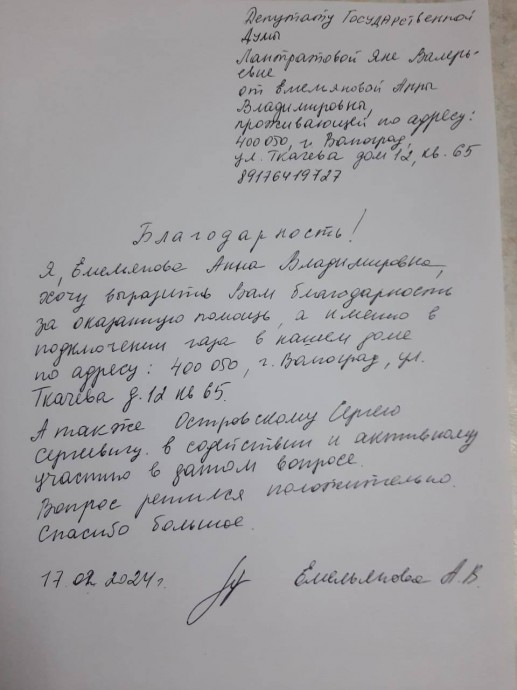 Депутату Государственной
Думы
Лантратовой Яне Валерь-
евне
от Емельяновой Анны
Владимировна,
проживающей по адресу:
400 050, г. Волгоград,
ул. Ткачева дом 12, кв. 65
89176419727
Благодарность!
Я, Емельянова Анна Владимировна,
хочу выразить Вам благодарность
за оказанную помощь, а именно в
подключении газа в нашем доме
по адресу: 400 050, г. Волгоград, ул.
Ткачева д. 12 кв 65.
А также Островскому Сергею
Сергевичу. в содействии и активному
участию в данном вопросе.
Вопрос решился положительно.
Спасибо большое.
17.02.2024г. Емельянова А.В.